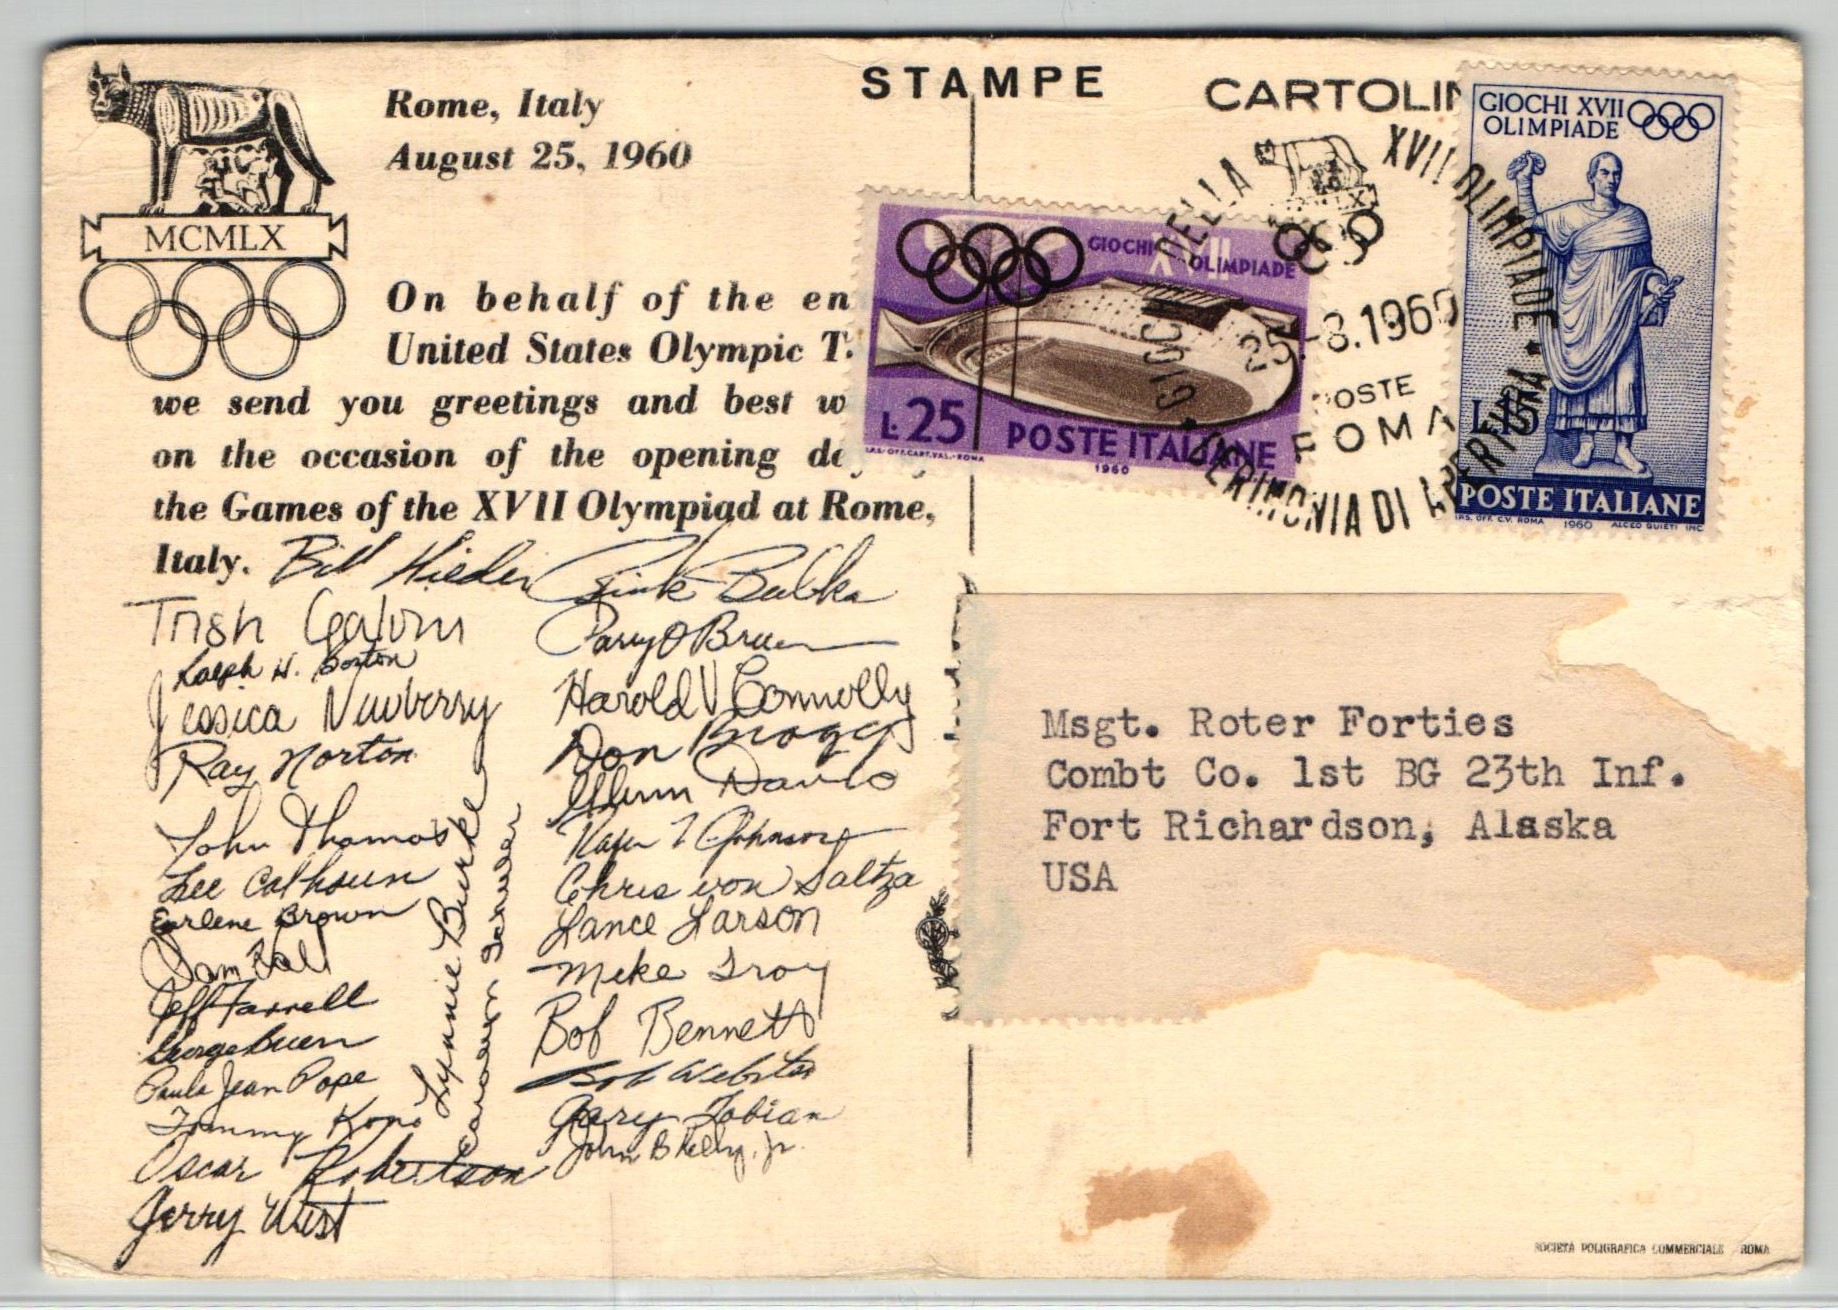 MCMLX
Rome, Italy
August 25, 1960
On behalf of the en
United States Olympic T
we send you greetings and best w
on the occasion of the opening da
the Games of the XVII Olympiad at Rome,
Italy.
Bill Nieder
Parry O'Brien
Harold V Connolly
Don Bragg
Glenn Davis
Rafer L Johnson
Chris von Saltza
Lance Larson
Mike Troy
Bob Bennett
Bob Webster
Gary Tobian
John B Kelly, Jr.
Ralph H. Boston
Ray Norton
John Thomas
Lee Calhoun
Earlene Brown
Jeff Farrell
George Breen
Paula Jean Pope
Tommy Kono
Oscar Robertson
Jerry West
Lynne Burke
STAMPE
CARTOLIN
GIOCHI XVII OLIMPIADE
L.25
POSTE ITALIANE
I.P.S. OFF. CART. VAL. - ROMA
1960
GIOCHI XVII
OLIMPIADE
L.15
POSTE ITALIANE
I.P.S. OFF. C.V. ROMA 1960
GIOCHI DELLA XVII OLIMPIADE
25.8.1960
POSTE
ROMA
CERIMONIA DI APERTURA
Msgt. Roter Forties
Combt Co. 1st BG 23th Inf.
Fort Richardson, Alaska
USA
SOCIETÀ POLIGRAFICA COMMERCIALE ROMA